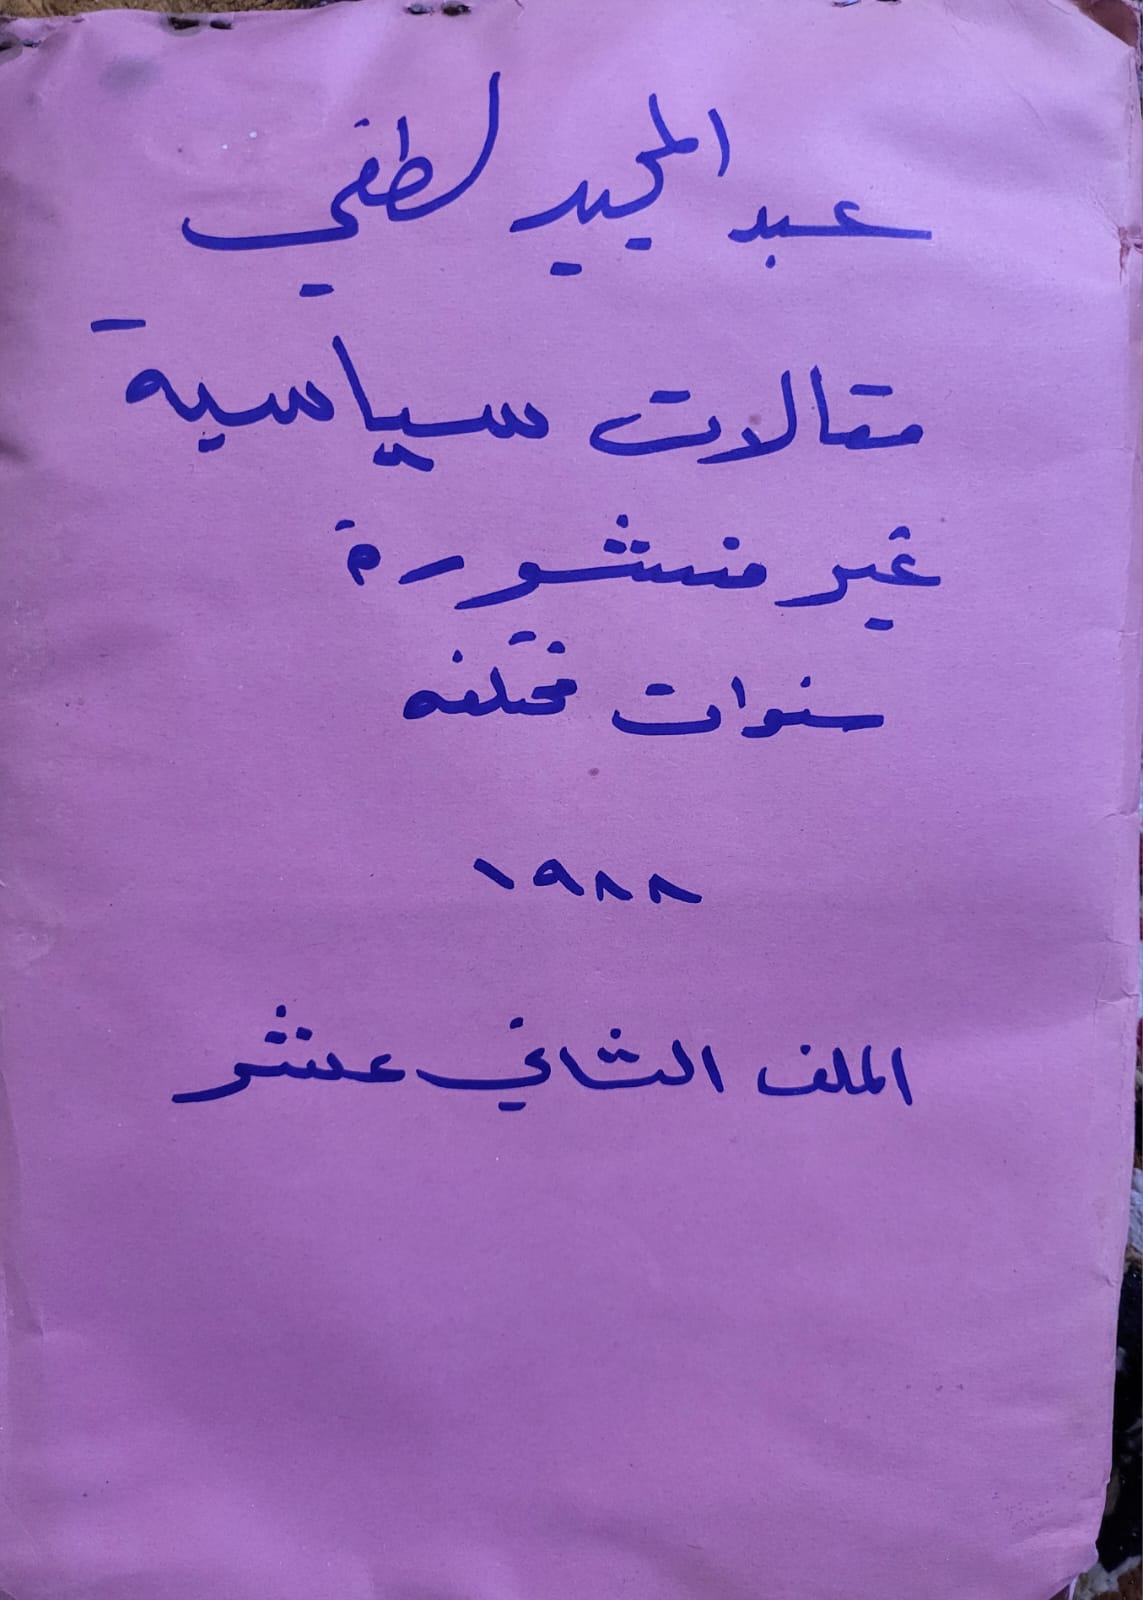 عبد المجيد لطفي
مقالات سياسية
غير منشورة
سنوات مختلفه
١٩٨٨
الملف الثاني عشر